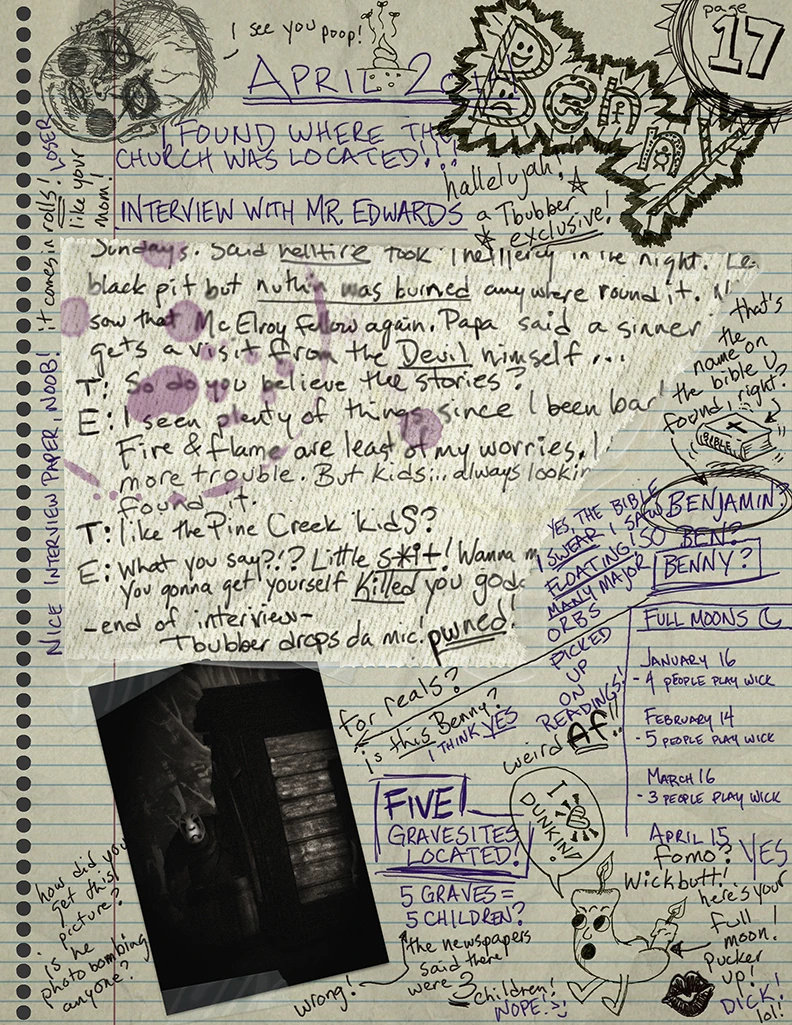 I see you poop!
page
17
APRIL 20TH
I FOUND WHERE THE
CHURCH WAS LOCATED!!!
hallelujah!
INTERVIEW WITH MR. EDWARDS
a Tbubber
exclusive!
NICE INTERVIEW PAPER, NOOB! it comes in rolls! LOSER
like your
mom!
Sundays. Said hellfire took the Mercy in the night. Le
black pit but nuthin was burned anywhere round it.
saw that McElroy fellow again. Papa said a sinner
gets a visit from the Devil himself...
T: So do you believe the stories?
E: I seen plenty of things since I been bar
Fire & flame are least of my worries. I
more trouble. But kids... always lookin
found it.
T: like the Pine Creek kidS?
E: What you say?!? Little s*it! Wanna m
You gonna get yourself Killed you godd
-end of interview-
Tbubber drops da mic! pwned!
that's
the
name on
the bible U
found, right?
BIBLE
BENJAMIN?
BEN?
BENNY?
YES, THE BIBLE
I SWEAR I SAW
FLOATING! SO
MANY MAJOR
ORBS
PICKED
UP
ON
READINGS!
weird AF!!
for reals?
is this Benny?
I THINK YES
FULL MOONS
JANUARY 16
- 4 PEOPLE PLAY WICK
FEBRUARY 14
- 5 PEOPLE PLAY WICK
MARCH 16
- 3 PEOPLE PLAY WICK
APRIL 15
fomo? YES
Wickbutt!
here's your
full
moon!
Pucker
up!
DICK!
lol!
I
DUNKIN!
FIVE!
GRAVESITES
LOCATED!
5 GRAVES =
5 CHILDREN?
the newspapers
said there
were 3 children!
wrong!
NOPE! :)
how did you
get this
picture?
is he
photo bombing
anyone?